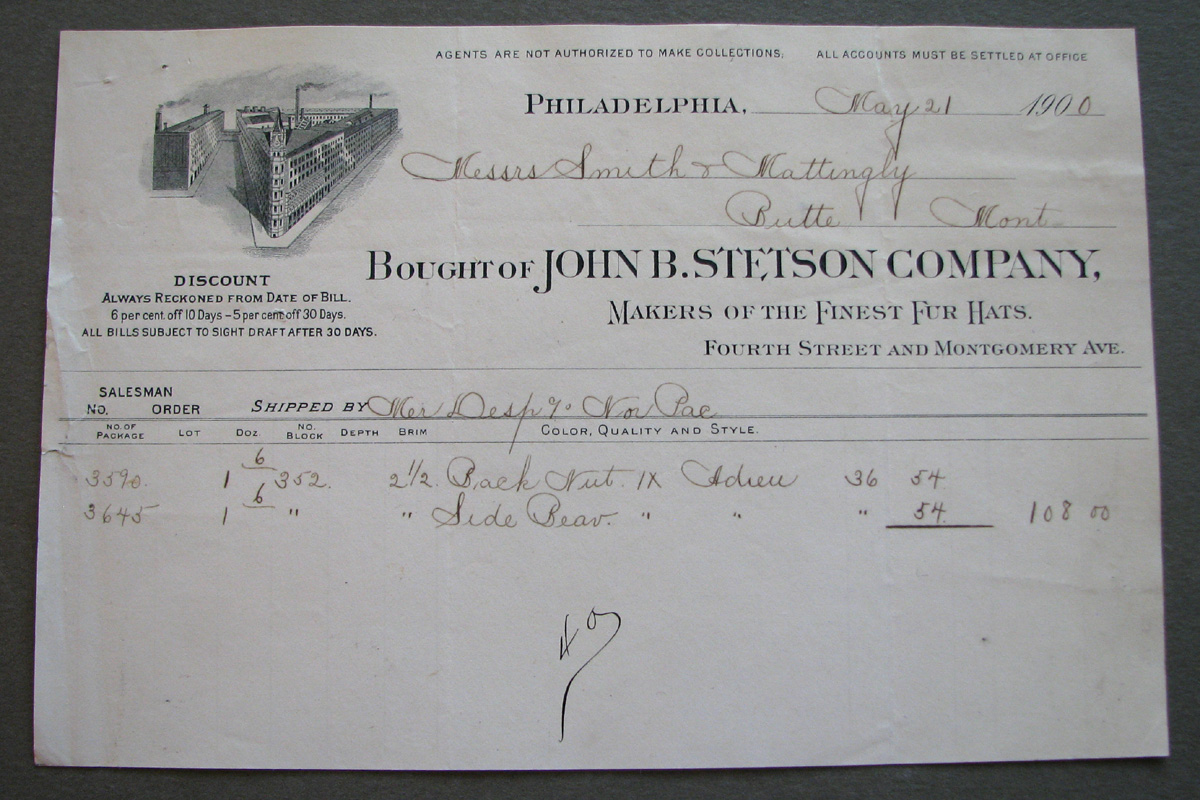 AGENTS ARE NOT AUTHORIZED TO MAKE COLLECTIONS; ALL ACCOUNTS MUST BE SETTLED AT OFFICE
PHILADELPHIA, May 21 1900
Messrs Smith & Mattingly
Butte Mont
BOUGHT OF JOHN B. STETSON COMPANY,
MAKERS OF THE FINEST FUR HATS.
FOURTH STREET AND MONTGOMERY AVE.
DISCOUNT
ALWAYS RECKONED FROM DATE OF BILL.
6 per cent. off 10 Days – 5 per cent off 30 Days.
ALL BILLS SUBJECT TO SIGHT DRAFT AFTER 30 DAYS.
SALESMAN
NO. ORDER SHIPPED BY Mer Desp % Nor Pac
NO. OF PACKAGE LOT DOZ. NO. BLOCK DEPTH BRIM COLOR, QUALITY AND STYLE.
3590. 1 6 352. 2 1/2. Back Nut. 1X Adieu 36 54.
3645 1 6 " " Side Beav. " " " 54. 108 00